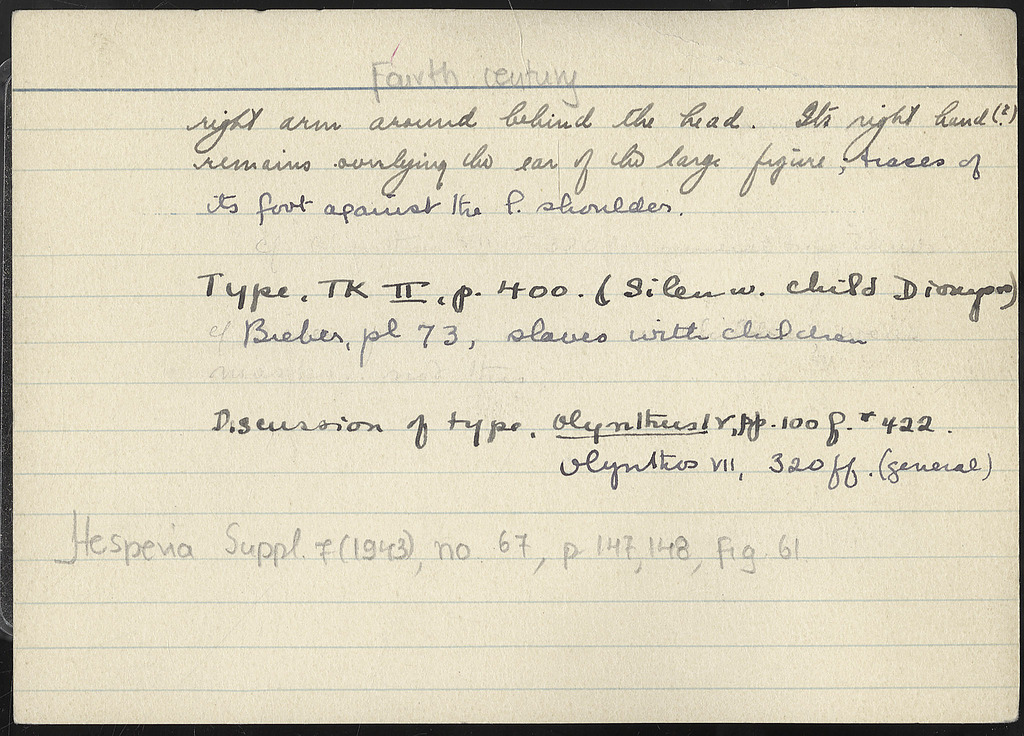 Fourth century
right arm around behind the head. Its right hand(?)
remains overlying the ear of the large figure; traces of
its foot against the l. shoulder.
Type, TK II, p. 400. (Silen w. child Dionysos)
cf Bieber, pl 73, slaves with children
Discussion of type, Olynthus IV, pp. 100 f. # 422.
Olynthos VII, 320 ff. (general)
Hesperia Suppl. 7 (1943), no. 67, p 147, 148, Fig. 61